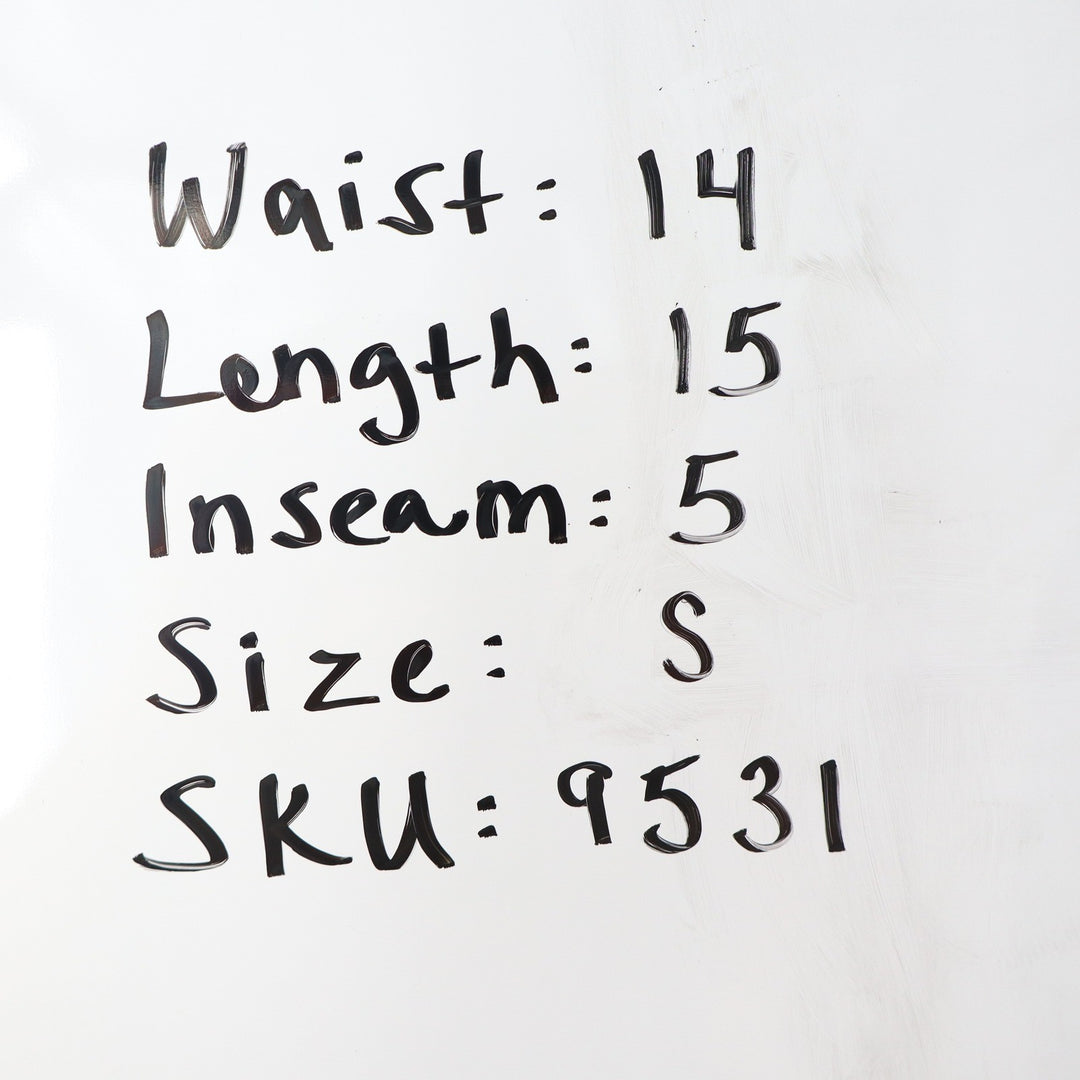 Waist: 14
Length: 15
Inseam: 5
Size: S
SKU: 9531